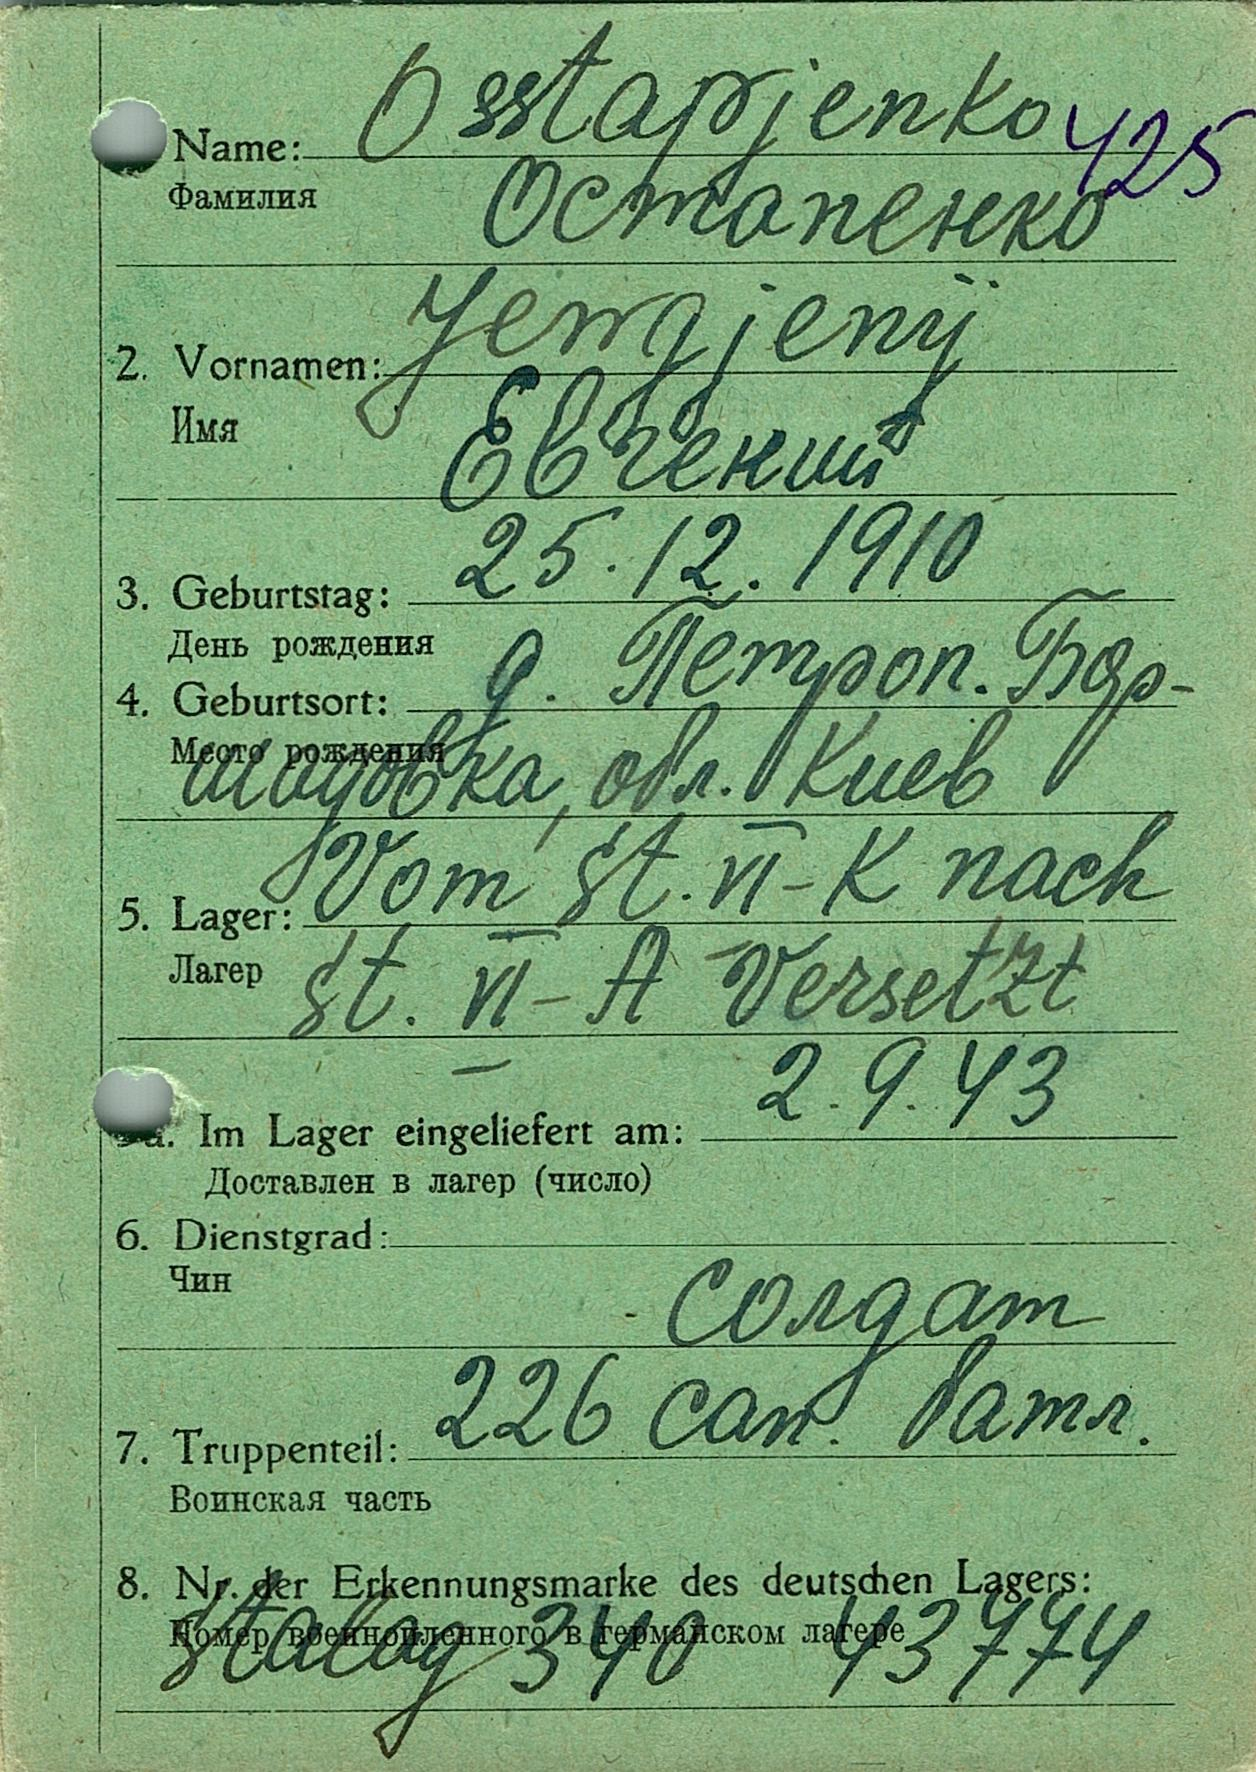 Osstapjenko 425
Name:
Фамилия
Остапенко
Jewgjenij
2. Vornamen:
Имя
Евгений
25.12.1910
3. Geburtstag:
День рождения
д. Петроп. Бор-
4. Geburtsort:
Место рождения
обл. Киев
Vom St. VI-K nach
5. Lager:
Лагер
St. VI-A Versetzt
2.9.43
5a. Im Lager eingeliefert am:
Доставлен в лагер (число)
6. Dienstgrad:
Чин
солдат
226 сап. батл.
7. Truppenteil:
Воинская часть
8. Nr. der Erkennungsmarke des deutschen Lagers:
Номер военнопленного в германском лагере
Stalag 340 43774